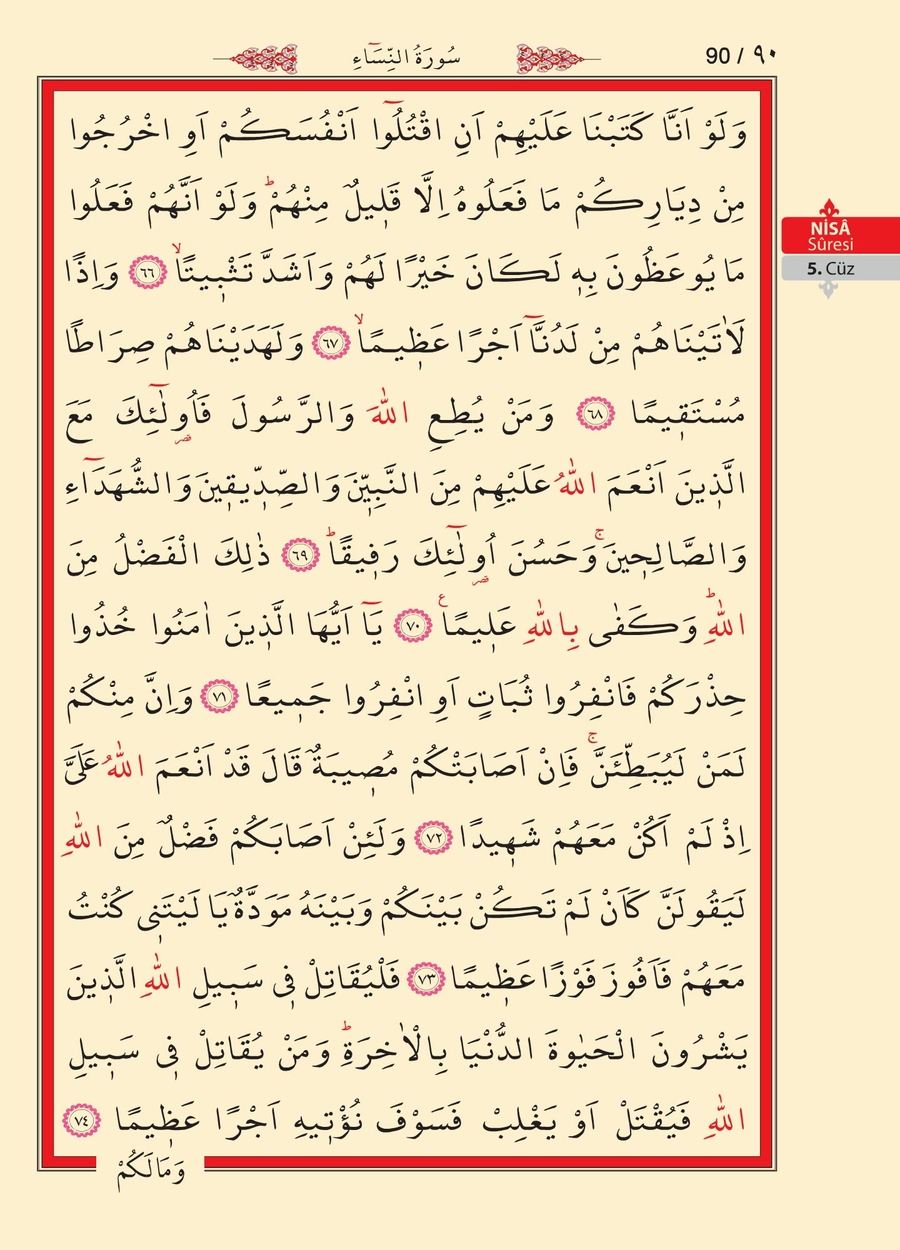 سُورَةُ النِّسَٓاءِ
90 / ٩٠
وَلَوْ اَنَّا كَتَبْنَا عَلَيْهِمْ اَنِ اقْتُلُٓوا اَنْفُسَكُمْ اَوِ اخْرُجُوا
مِنْ دِيَارِكُمْ مَا فَعَلُوهُ اِلَّا قَلٖيلٌ مِنْهُمْۜ وَلَوْ اَنَّهُمْ فَعَلُوا
مَا يُوعَظُونَ بِهٖ لَكَانَ خَيْرًا لَهُمْ وَاَشَدَّ تَثْبٖيتًاۙ ﴿٦٦﴾ وَاِذًا
لَاٰتَيْنَاهُمْ مِنْ لَدُنَّٓا اَجْرًا عَظٖيمًاۙ ﴿٦٧﴾ وَلَهَدَيْنَاهُمْ صِرَاطًا
مُسْتَقٖيمًا ﴿٦٨﴾ وَمَنْ يُطِعِ اللّٰهَ وَالرَّسُولَ فَاُو۬لٰٓئِكَ مَعَ
الَّذٖينَ اَنْعَمَ اللّٰهُ عَلَيْهِمْ مِنَ النَّبِيّٖنَ وَالصِّدّٖيقٖينَ وَالشُّهَدَٓاءِ
وَالصَّالِحٖينَۚ وَحَسُنَ اُو۬لٰٓئِكَ رَفٖيقًاۜ ﴿٦٩﴾ ذٰلِكَ الْفَضْلُ مِنَ
اللّٰهِۜ وَكَفٰى بِاللّٰهِ عَلٖيمًاࣖ ﴿٧٠﴾ يَٓا اَيُّهَا الَّذٖينَ اٰمَنُوا خُذُوا
حِذْرَكُمْ فَانْفِرُوا ثُبَاتٍ اَوِ انْفِرُوا جَمٖيعًا ﴿٧١﴾ وَاِنَّ مِنْكُمْ
لَمَنْ لَيُبَطِّئَنَّۚ فَاِنْ اَصَابَتْكُمْ مُصٖيبَةٌ قَالَ قَدْ اَنْعَمَ اللّٰهُ عَلَيَّ
اِذْ لَمْ اَكُنْ مَعَهُمْ شَهٖيدًا ﴿٧٢﴾ وَلَئِنْ اَصَابَكُمْ فَضْلٌ مِنَ اللّٰهِ
لَيَقُولَنَّ كَاَنْ لَمْ تَكُنْ بَيْنَكُمْ وَبَيْنَهُ مَوَدَّةٌ يَا لَيْتَنٖى كُنْتُ
مَعَهُمْ فَاَفُوزَ فَوْزًا عَظٖيمًا ﴿٧٣﴾ فَلْيُقَاتِلْ فٖى سَبٖيلِ اللّٰهِ الَّذٖينَ
يَشْرُونَ الْحَيٰوةَ الدُّنْيَا بِالْاٰخِرَةِۜ وَمَنْ يُقَاتِلْ فٖى سَبٖيلِ
اللّٰهِ فَيُقْتَلْ اَوْ يَغْلِبْ فَسَوْفَ نُؤْتٖيهِ اَجْرًا عَظٖيمًا ﴿٧٤﴾
وَمَالَكُمْ
NİSÂ
Sûresi
5. Cüz